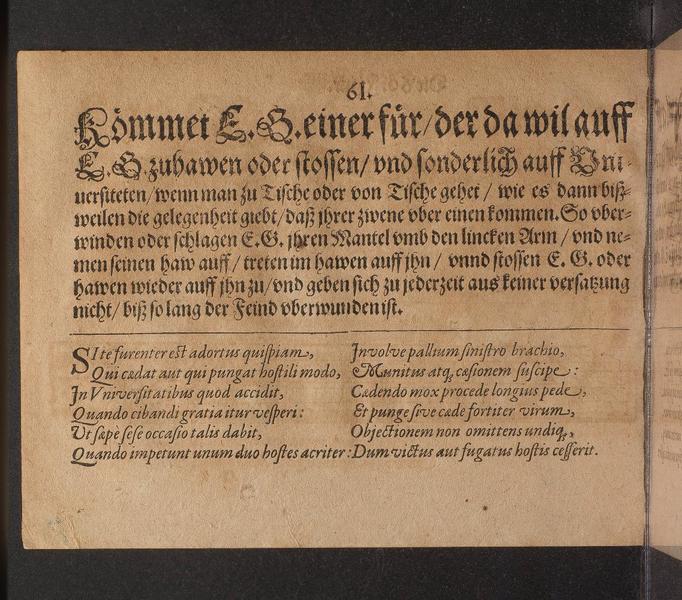 61.
Kömmet E. G. einer für / der da wil auff
E. G. zuhawen oder stossen / vnd sonderlich auff Vni-
uersiteten / wenn man zu Tische oder von Tische gehet / wie es dann biß-
weilen die gelegenheit giebt / daß jhrer zwene vber einen kommen. So vber-
winden oder schlagen E. G. jhren Mantel vmb den lincken Arm / vnd ne-
men seinen haw auff / treten im hawen auff jhn / vnnd stossen E. G. oder
hawen wieder auff jhn zu / vnd geben sich zu jederzeit aus keiner versatzung
nicht / biß so lang der Feind vberwunden ist.
SI te furenter est adortus quispiam,
Qui cædat aut qui pungat hostili modo,
In Vniversitatibus quod accidit,
Quando cibandi gratia itur vesperi:
Ut sæpe sese occasio talis dabit,
Quando impetunt unum duo hostes acriter:
Involve pallium sinistro brachio,
Munitus atq; cæsionem suscipe:
Cædendo mox procede longius pede,
Et punge sive cæde fortiter virum,
Objectionem non omittens undiq;,
Dum victus aut fugatus hostis cesserit.